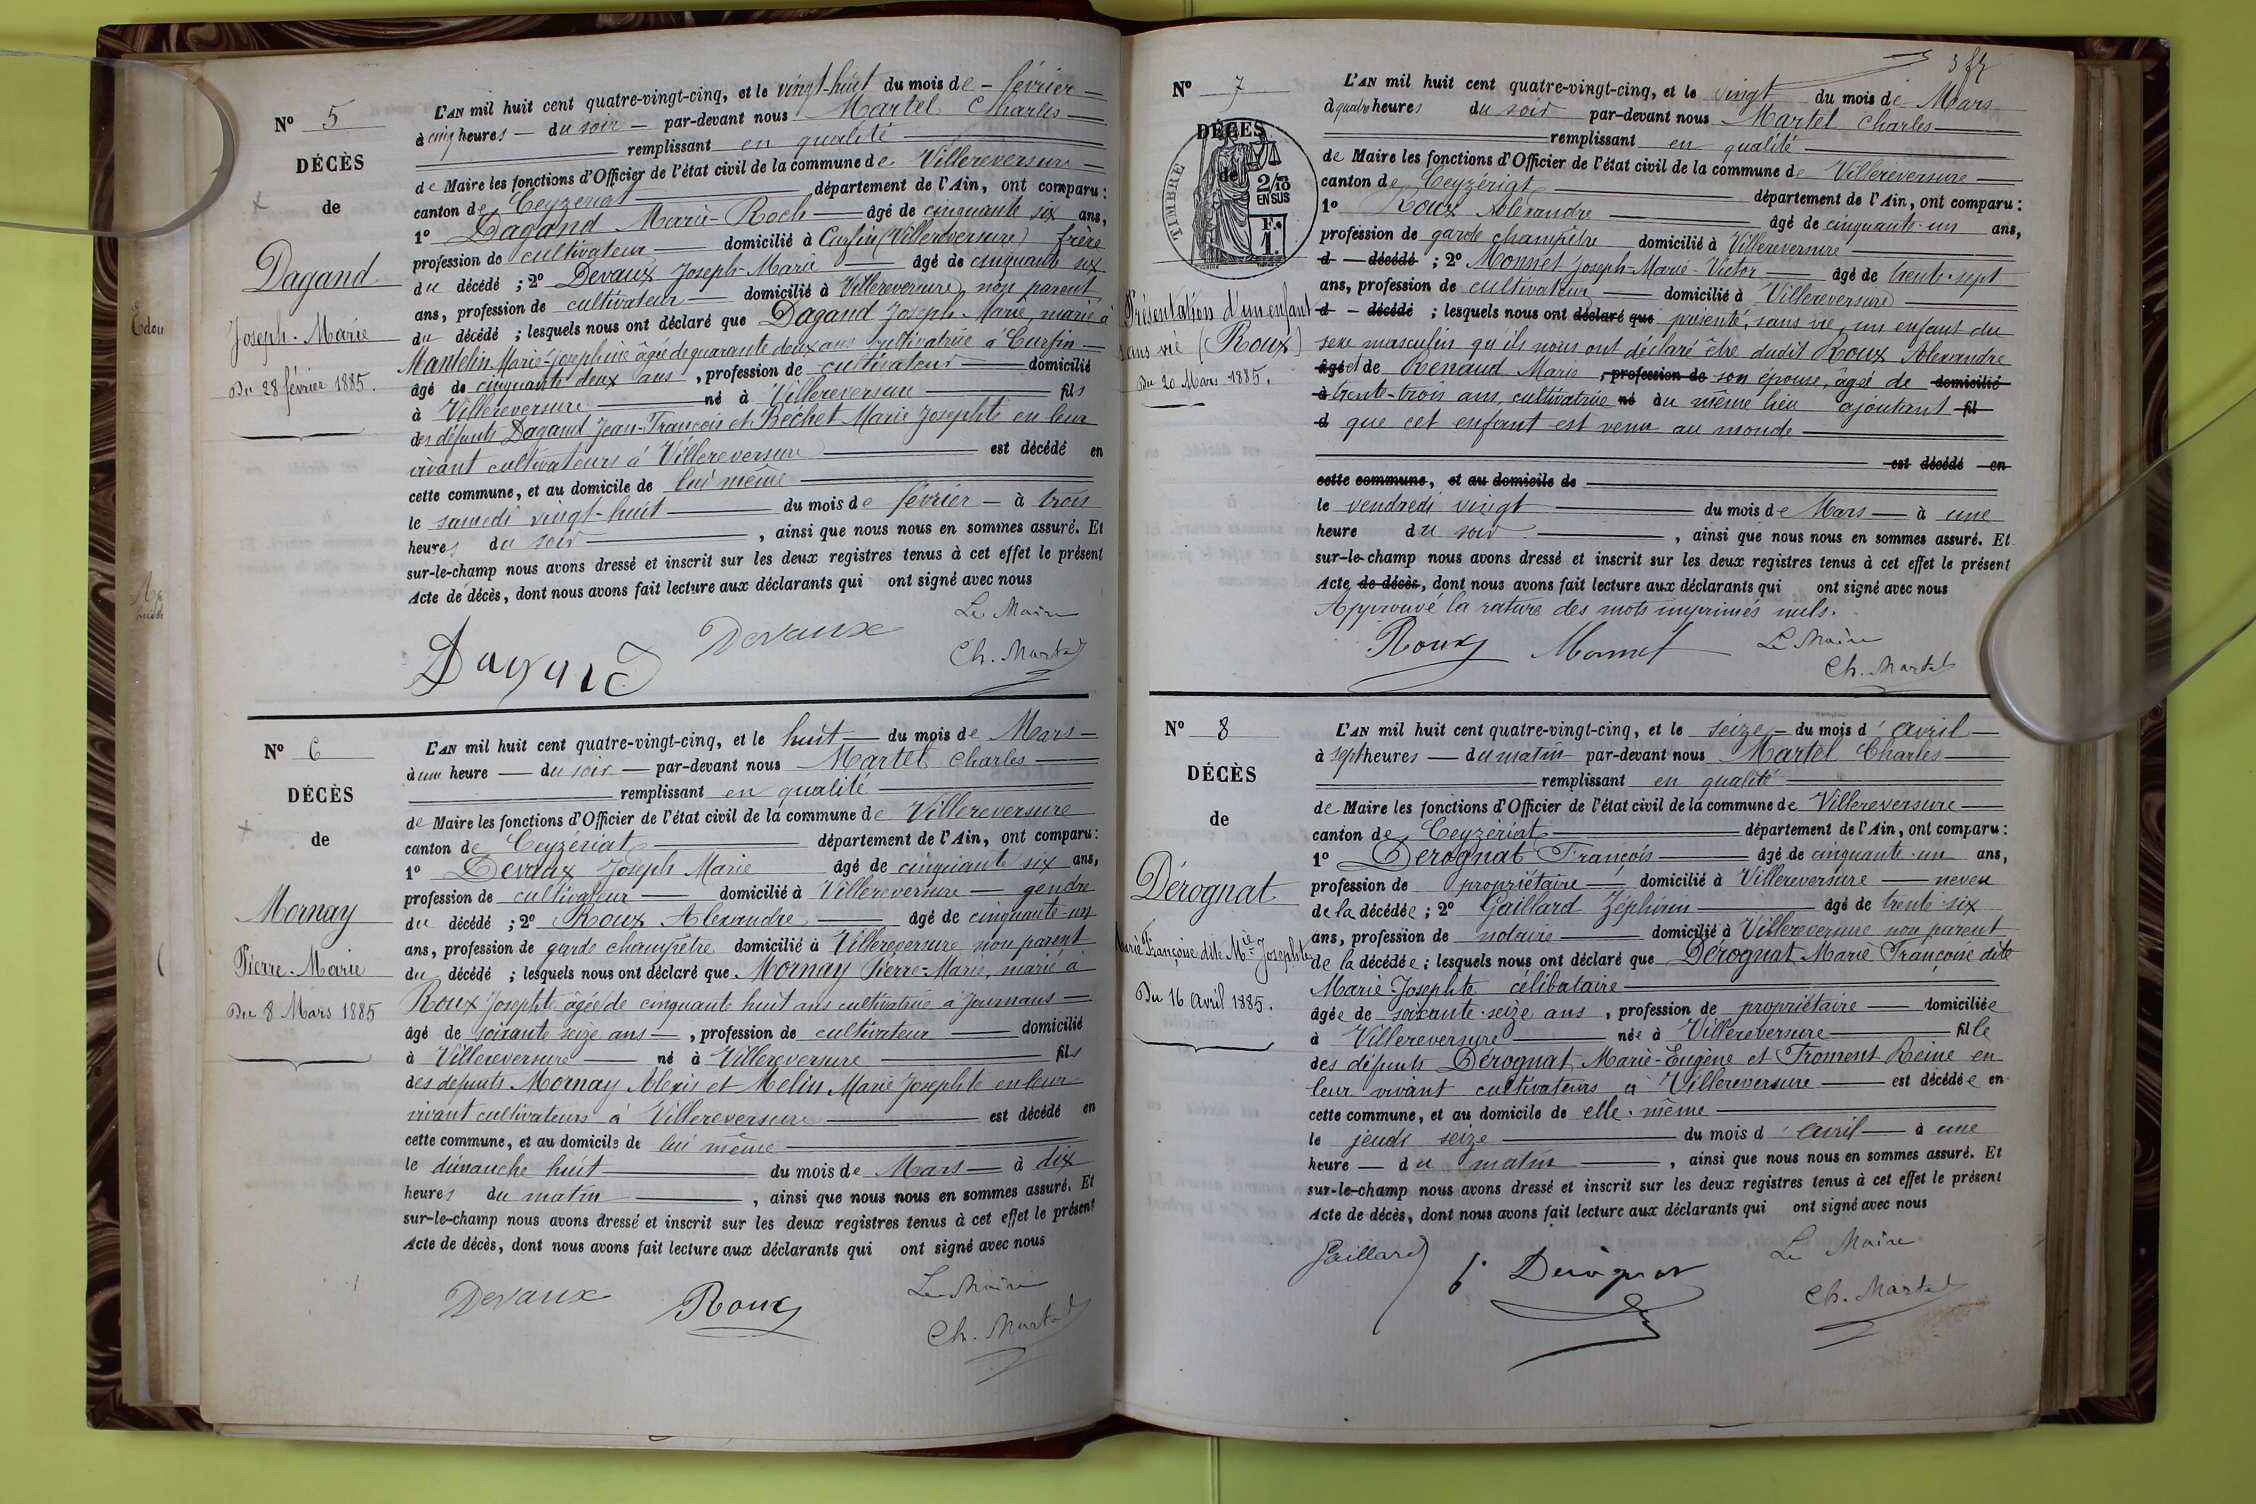 N° 5
DÉCÈS
de
Dagand
Joseph-Marie
Du 28 février 1885.
L'AN mil huit cent quatre-vingt-cinq, et le vingt-huit du mois de février
à cinq heures du soir par-devant nous Martel Charles
remplissant en qualité
de Maire les fonctions d'Officier de l'état civil de la commune de Villereversure
canton de Ceyzériat département de l'Ain, ont comparu :
1° Dagand Marie-Roch âgé de cinquante six ans,
profession de cultivateur domicilié à Curfin (Villereversure) frère
du décédé ; 2° Devaux Joseph-Marie âgé de cinquante six
ans, profession de cultivateur domicilié à Villereversure, non parent
du décédé ; lesquels nous ont déclaré que Dagand Joseph-Marie, marié à
Mantelin Marie-Josephine âgée de quarante deux ans cultivatrice à Curfin
âgé de cinquante deux ans, profession de cultivateur domicilié
à Villereversure né à Villereversure fils
des défunts Dagand Jean-François et Bechet Marie Josephte en leur
vivant cultivateurs à Villereversure est décédé en
cette commune, et au domicile de lui même
le samedi vingt-huit du mois de février à trois
heures du soir, ainsi que nous nous en sommes assuré. Et
sur-le-champ nous avons dressé et inscrit sur les deux registres tenus à cet effet le présent
Acte de décès, dont nous avons fait lecture aux déclarants qui ont signé avec nous
Le Maire
Dagand Devaux Ch. Martel
N° 6
DÉCÈS
de
Mornay
Pierre-Marie
Du 8 Mars 1885
L'AN mil huit cent quatre-vingt-cinq, et le huit du mois de Mars
à une heure du soir par-devant nous Martel Charles
remplissant en qualité
de Maire les fonctions d'Officier de l'état civil de la commune de Villereversure
canton de Ceyzériat département de l'Ain, ont comparu :
1° Devaux Joseph Marie âgé de cinquante six ans,
profession de cultivateur domicilié à Villereversure gendre
du décédé ; 2° Roux Alexandre âgé de cinquante-un
ans, profession de garde champêtre domicilié à Villereversure non parent
du décédé ; lesquels nous ont déclaré que Mornay Pierre-Marie, marié à
Roux Josephte âgée de cinquante huit ans cultivatrice à Journans
âgé de soixante seize ans, profession de cultivateur domicilié
à Villereversure né à Villereversure fils
des defunts Mornay Alexis et Melin Marie Josephte en leur
vivant cultivateurs à Villereversure est décédé en
cette commune, et au domicile de lui même
le dimanche huit du mois de Mars à dix
heures du matin, ainsi que nous nous en sommes assuré. Et
sur-le-champ nous avons dressé et inscrit sur les deux registres tenus à cet effet le présent
Acte de décès, dont nous avons fait lecture aux déclarants qui ont signé avec nous
Devaux Roux Le Maire
Ch. Martel
N° 7
DÉCÈS
de
TIMBRE
2/10
EN SUS
F. 1.
Présentation d'un enfant
sans vie (Roux)
Du 20 Mars 1885.
L'AN mil huit cent quatre-vingt-cinq, et le vingt du mois de Mars
à quatre heures du soir par-devant nous Martel Charles
remplissant en qualité
de Maire les fonctions d'Officier de l'état civil de la commune de Villereversure
canton de Ceyzériat département de l'Ain, ont comparu :
1° Roux Alexandre âgé de cinquante-un ans,
profession de garde champêtre domicilié à Villereversure
d décédé ; 2° Monnet Joseph-Marie-Victor âgé de trente-sept
ans, profession de cultivateur domicilié à Villereversure
d décédé ; lesquels nous ont déclaré que présenté, sans vie, un enfant du
sexe masculin qu'ils nous ont déclaré être dudit Roux Alexandre
âgé et de Renaud Marie, profession de son épouse, âgée de domicilié
à trente-trois ans, cultivatrice né au même lieu ajoutant fil
d que cet enfant est venu au monde
est décédé en
cette commune, et au domicile de
le vendredi vingt du mois de Mars à une
heure du soir, ainsi que nous nous en sommes assuré. Et
sur-le-champ nous avons dressé et inscrit sur les deux registres tenus à cet effet le présent
Acte de décès, dont nous avons fait lecture aux déclarants qui ont signé avec nous
Approuvé la rature des mots imprimés nuls.
Roux Monnet Le Maire
Ch. Martel
N° 8
DÉCÈS
de
Dérognat
Marie Françoise dite Mie Josephte
Du 16 Avril 1885.
L'AN mil huit cent quatre-vingt-cinq, et le seize du mois d'avril
à sept heures du matin par-devant nous Martel Charles
remplissant en qualité
de Maire les fonctions d'Officier de l'état civil de la commune de Villereversure
canton de Ceyzériat département de l'Ain, ont comparu :
1° Dérognat François âgé de cinquante-un ans,
profession de propriétaire domicilié à Villereversure neveu
de la décédée ; 2° Gaillard Zéphirin âgé de trente-six
ans, profession de notaire domicilié à Villereversure non parent
de la décédée ; lesquels nous ont déclaré que Dérognat Marie Françoise dite
Marie-Josephte célibataire
âgée de soixante-seize ans, profession de propriétaire domiciliée
à Villereversure née à Villereversure fille
des défunts Dérognat Marie-Eugène et Froment Reine en
leur vivant cultivateurs à Villereversure est décédée en
cette commune, et au domicile de elle-même
le jeudi seize du mois d'avril à une
heure du matin, ainsi que nous nous en sommes assuré. Et
sur-le-champ nous avons dressé et inscrit sur les deux registres tenus à cet effet le présent
Acte de décès, dont nous avons fait lecture aux déclarants qui ont signé avec nous
Gaillard f. Dérognat Le Maire
Ch. Martel